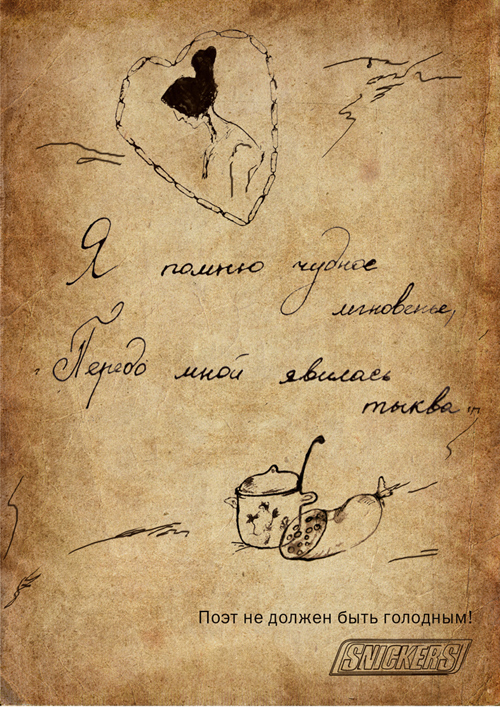 Я помню чудное
мгновенье,
Передо мной явилась
тыква...
Поэт не должен быть голодным!
SNICKERS